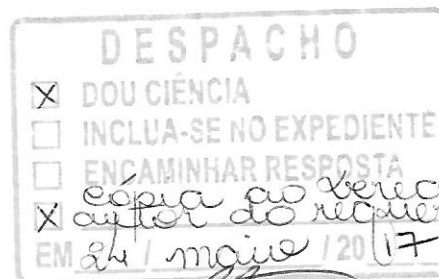 DESPACHO
X DOU CIÊNCIA
INCLUA-SE NO EXPEDIENTE
ENCAMINHAR RESPOSTA
cópia ao veread
X autor do requer
EM 24 / maio / 20 17